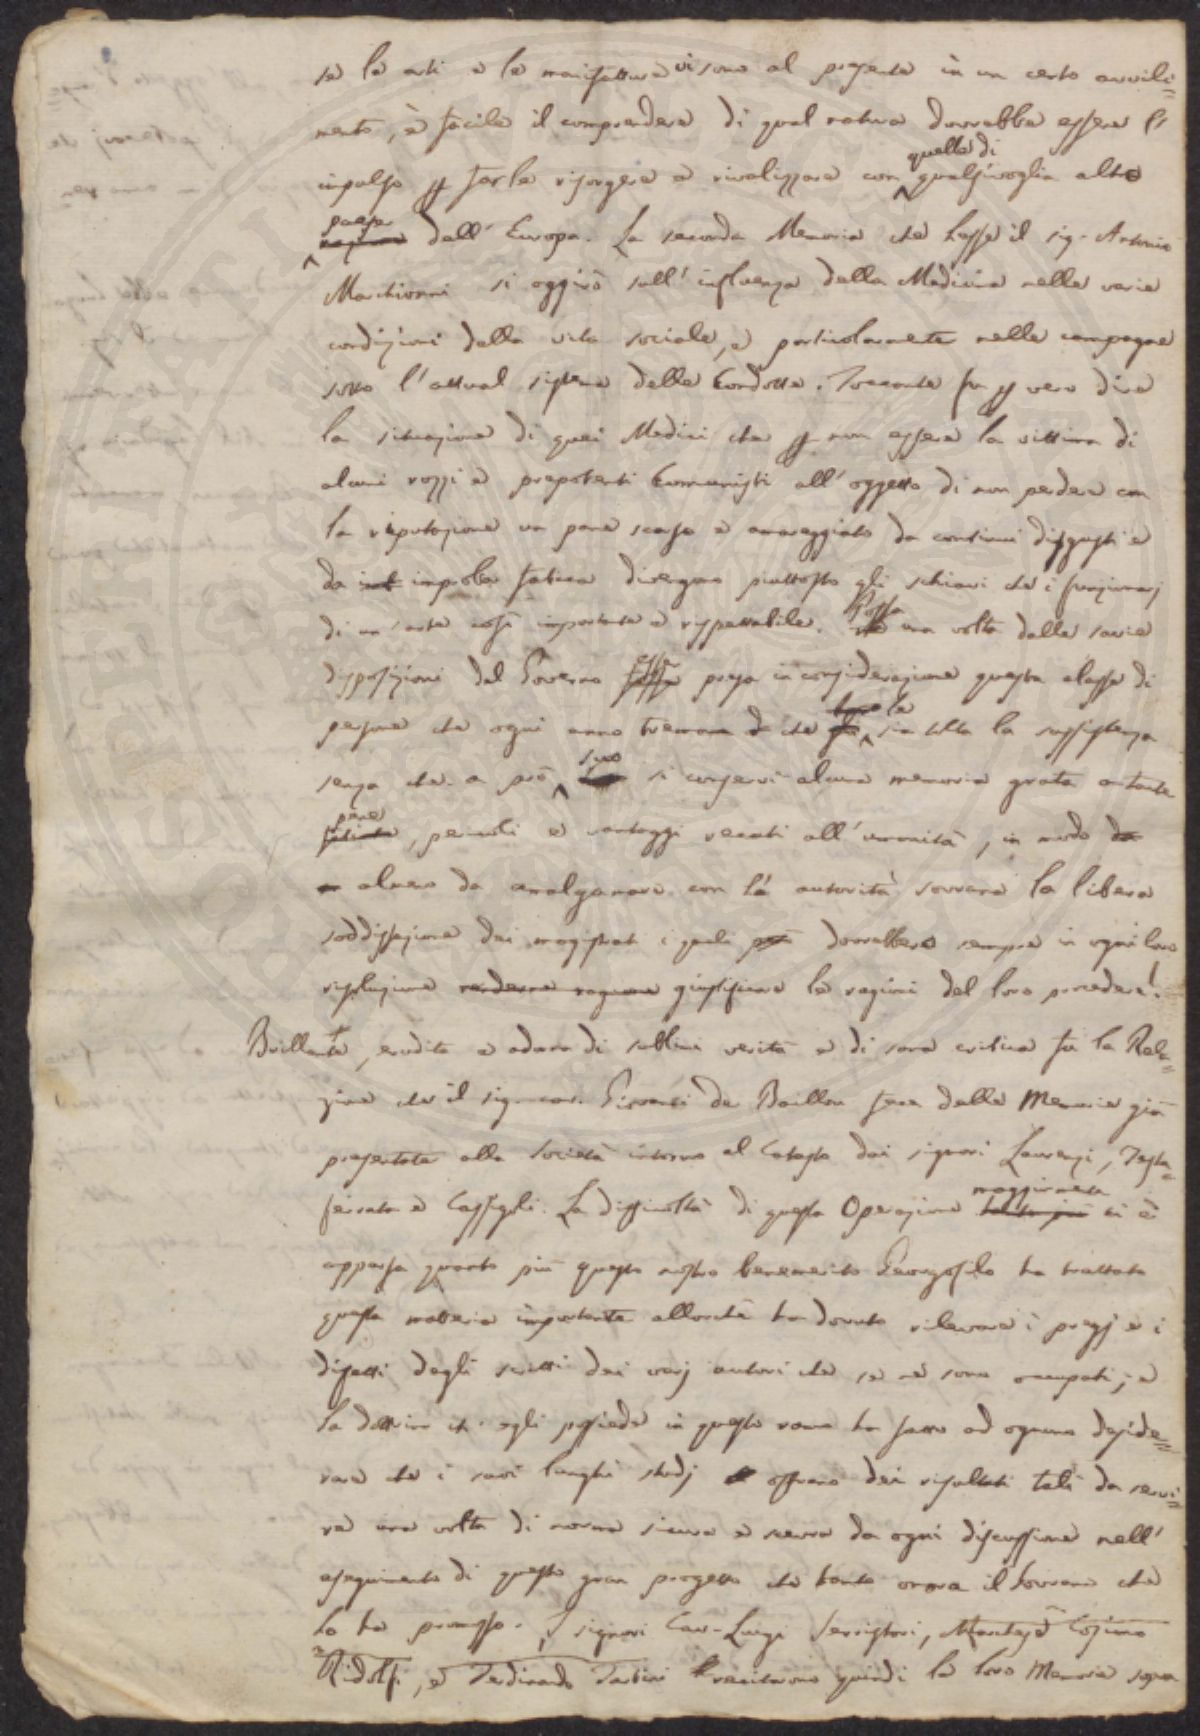 se le arti e le manifatture vi sono al presente in un certo avvili=
mento, è facile il comprendere di qual natura dovrebbe essere l'
impulso per farle risorgere e rivalizzare con quelle di qualsivoglia altro
paese dell'Europa. La seconda Memoria che lesse il sig. Antonio
Marchionni si aggirò sull'influenza della Medicina nelle varie
condizioni della vita sociale, e particolarmente nelle campagne
sotto l'attual sistema delle Condotte. Toccante fu per vero dire
la situazione di quei Medici che per non essere la vittima di
alcuni rozzi e prepotenti Comunisti all'oggetto di non perdere con
la riputazione un pane scarso e amareggiato da continui disgusti e
da improba fatica divengono piuttosto gli schiavi che i funzionarj
di un'arte così importante e rispettabile. Possa una volta dalle savie
disposizioni del Governo esser presa in considerazione questa classe di
persone che ogni anno tremano che le sia tolta la sussistenza
senza che a prò suo si conservi alcuna memoria grata a tante
pene, pericoli e vantaggi recati all'umanità, in modo
almeno da amalgamare con la autorità sovrana la libera
soddisfazione dei magistrati i quali dovrebbero sempre in ogni loro
risoluzione giustificare le ragioni del loro procedere!
Brillante, erudita e adorna di sublimi verità e di sana critica fu la Rela=
zione che il sig. cav. Giovanni de Baillou fece delle Memorie già
presentate alla Società intorno al Catasto dai signori Laurenzi, Testa=
ferrata e Cassigoli. La difficoltà di questa Operazione maggiormente ci è
apparsa quanto più questo nostro benemerito Georgofilo ha trattato
questa materia importante allorchè ha dovuto rilevare i pregj e i
difetti degli scritti dei varj autori che se ne sono occupati; e
la dottrina ch'egli possiede in questo ramo ha fatto ad ognuno deside=
rare che i suoi lunghi studj offrano dei risultati tali da servi=
re una volta di norma sicura e scevra da ogni discussione nell'
eseguimento di questo gran progetto che tanto onora il Sovrano che
lo ha promosso. I signori Cav. Luigi Serristori, Marchese Cosimo
Ridolfi, e Ferdinando Tartini recitarono quindi le loro Memorie sopra